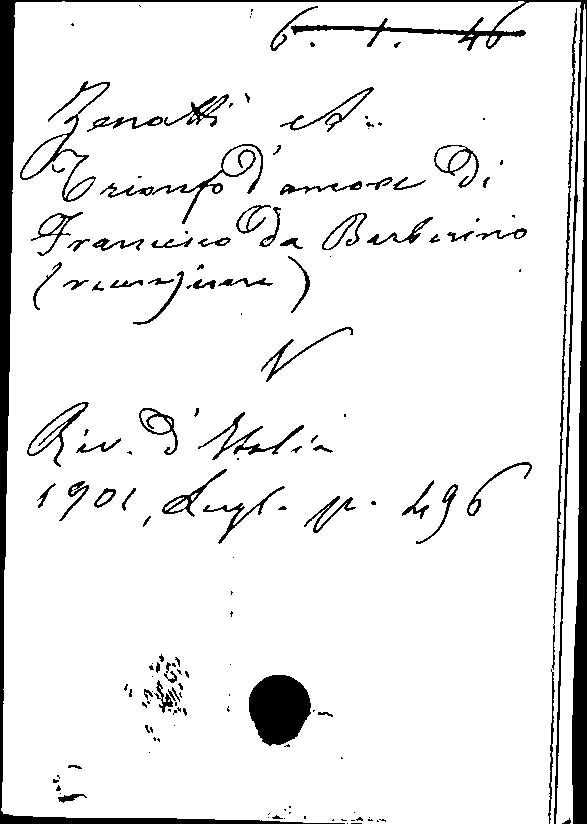 6. 1. 46
Zenatti A.
Trionfo d'amore di
Francesco da Barberino
(recensione)
N
Riv. d'Italia
1901, Lugl. p. 496